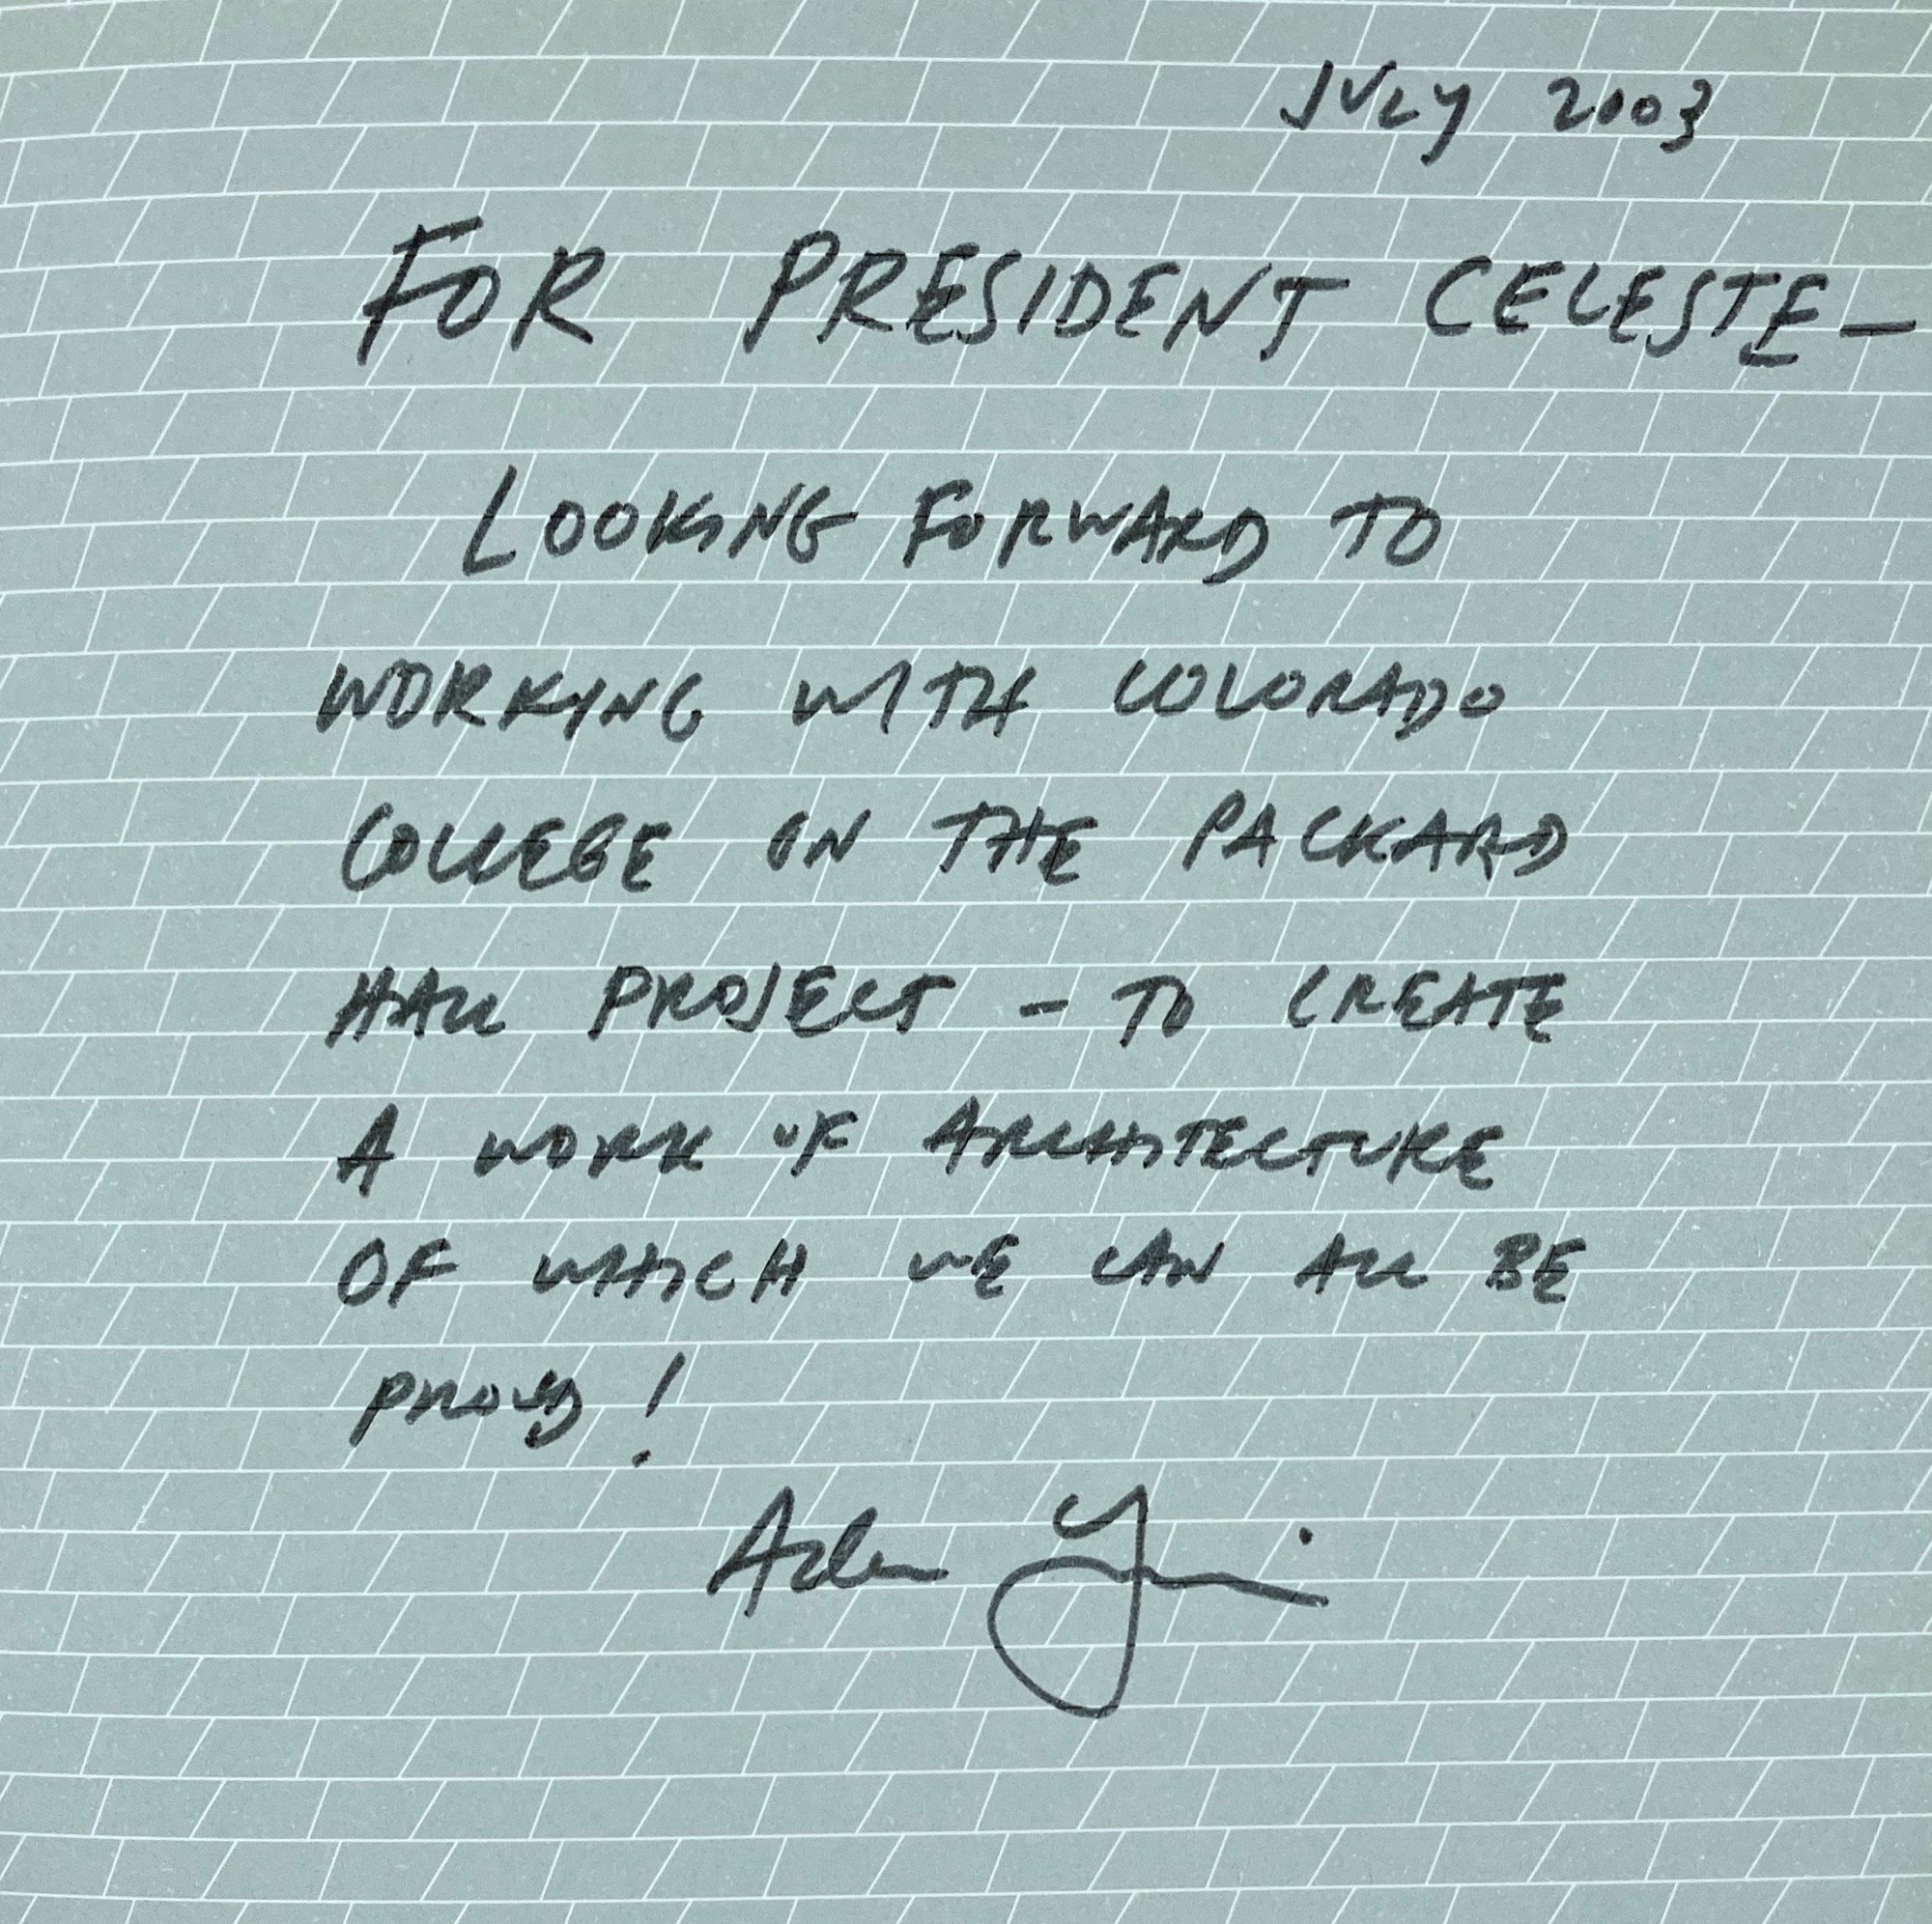 JULY 2003
FOR PRESIDENT CELESTE—
LOOKING FORWARD TO
WORKING WITH COLORADO
COLLEGE ON THE PACKARD
HALL PROJECT – TO CREATE
A WORK OF ARCHITECTURE
OF WHICH WE CAN ALL BE
PROUD!
Adam